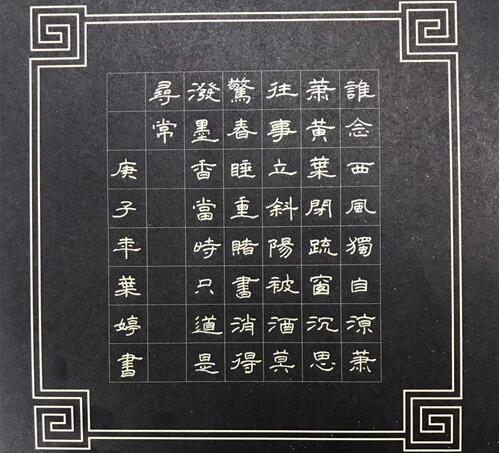 誰念西風獨自涼蕭
蕭黃葉閉疏窗沉思
往事立斜陽被酒莫
驚春睡重賭書消得
潑墨香當時只道是
尋常
庚子年葉婷書